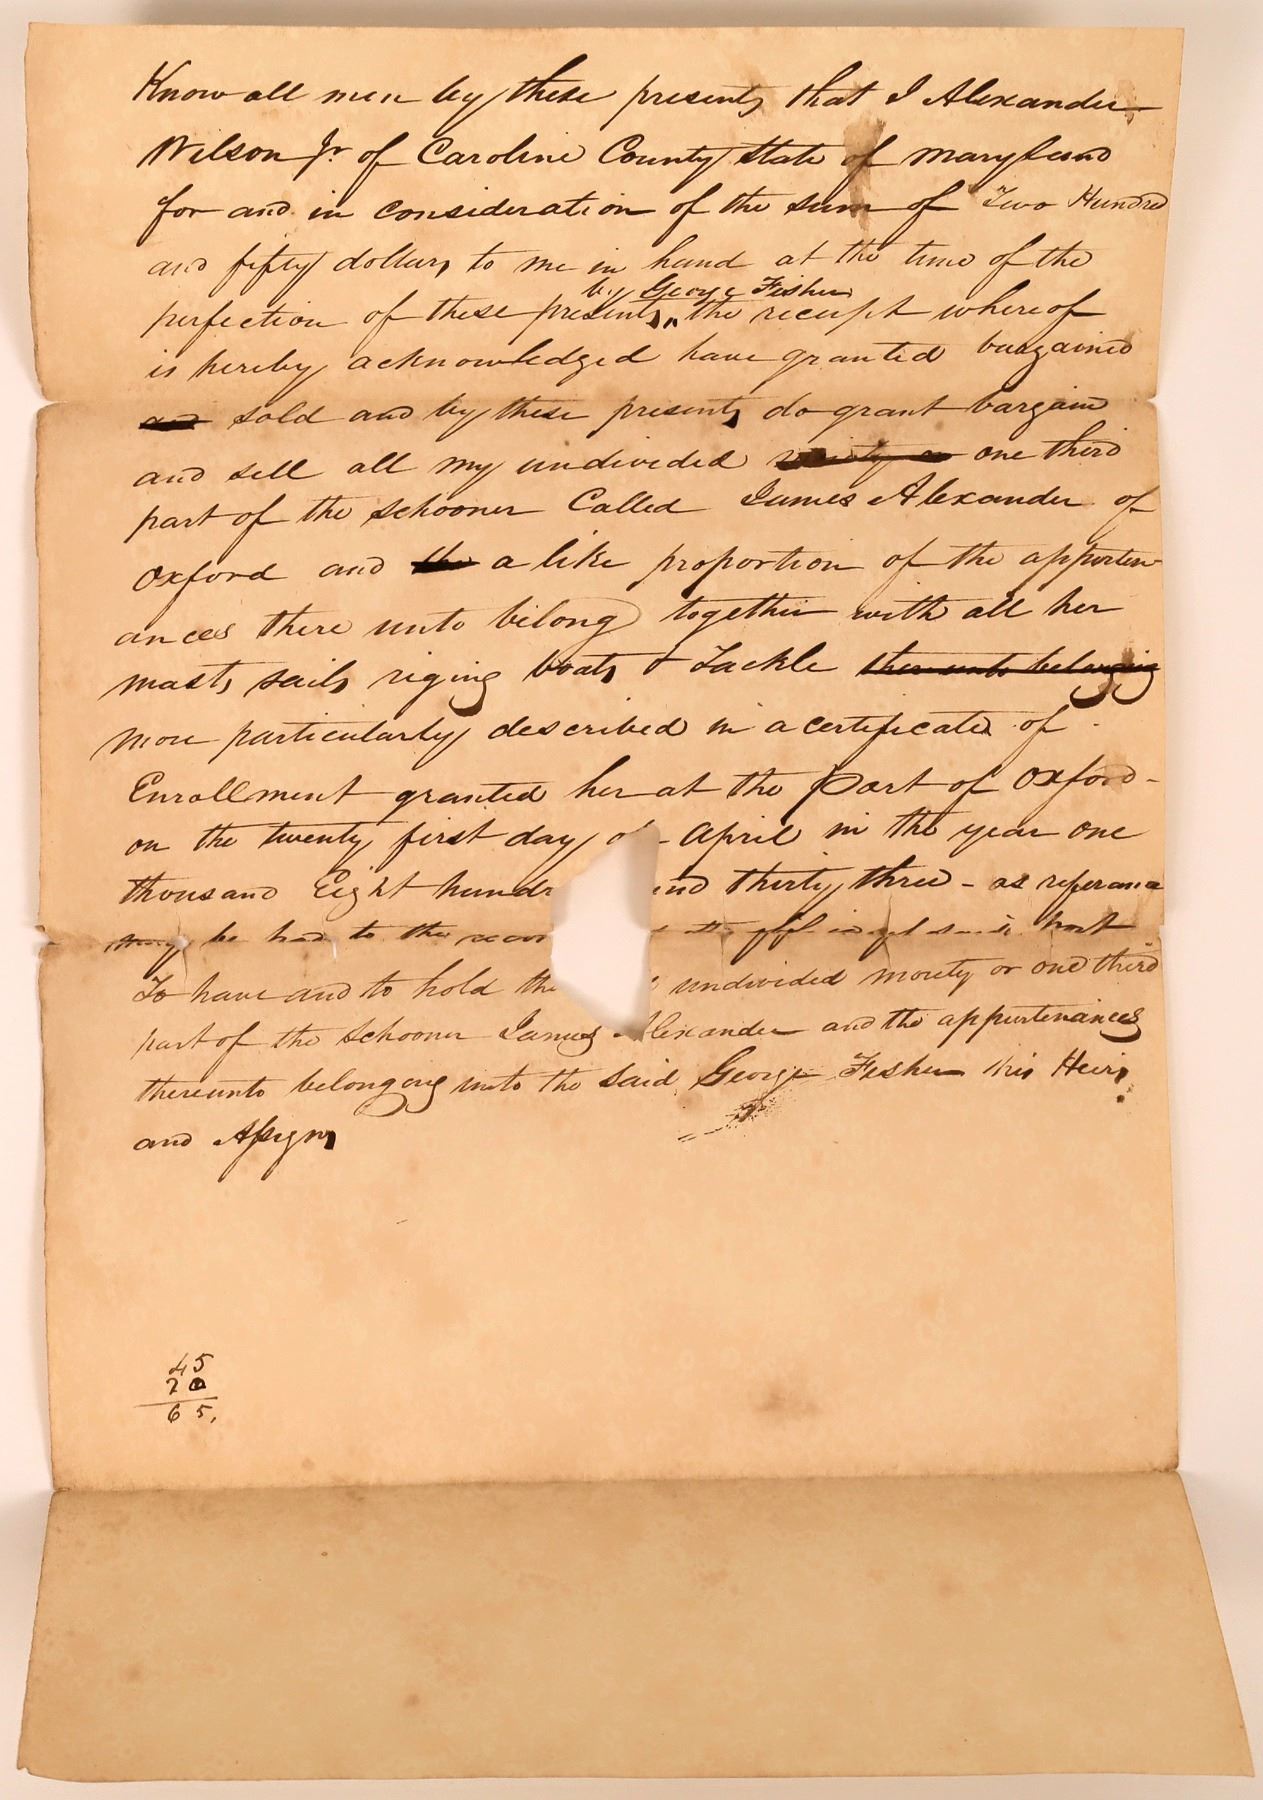 Know all men by these presents that I Alexander
Wilson Jr of Caroline County State of Maryland
for and in consideration of the sum of Two Hundred
and fifty dollars to me in hand at the time of the
by George Fisher
perfection of these presents the receipt whereof
is hereby acknowledged have granted bargained
and sold and by these presents do grant bargain
and sell all my undivided one third
part of the schooner Called James Alexander of
Oxford and the a like proportion of the apperten-
ances there unto belong together with all her
masts sails riging boats & Tackle thereunto belonging
more particularly described in a certificate of
Enrollment granted her at the Port of Oxford -
on the twenty first day of - April in the year one
thousand Eight hundr and thirty three - as referance
may be had to the recor port
To have and to hold the undivided moiety or one third
part of the schooner James Alexander and the appurtenances
thereunto belonging unto the said George Fisher his Heirs
and Assigns
45
20
65.